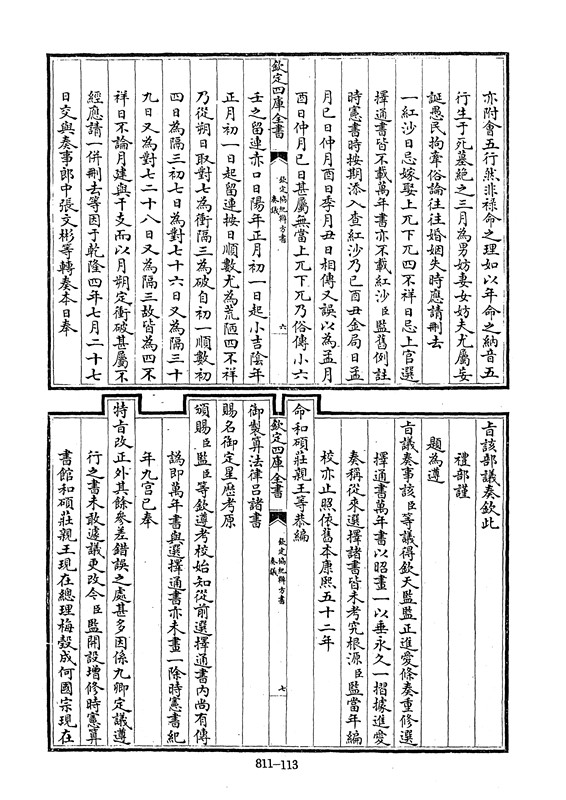 亦附會五行然非祿命之理如以年命之納音五
行生于死墓絶之三月為男妨妻女妨夫尤屬妄
誕愚民拘牽俗論往往婚姻失時應請刪去
一紅沙日忌嫁娶上兀下兀四不祥日忌上官選
擇通書皆不載萬年書亦不載紅沙臣監舊例註
時憲書時按期添入查紅沙乃巳酉丑金局日孟
月巳日仲月酉日季月丑日相傳又誤以為孟月
酉日仲月巳日甚屬無當上兀下兀乃俗傳小六
欽定四庫全書
欽定協紀辨方書
奏議
六
壬之留連赤口日陽年正月初一日起小吉陰年
正月初一日起留連按日順數尤為荒陋四不祥
乃從朔日取對七為衝隔三為破自初一順數初
四日為隔三初七日為對七十六日又為隔三十
九日又為對七二十八日又為隔三故皆為四不
祥日不論月建與干支而以月朔定衝破甚屬不
經應請一併刪去等因于乾隆四年七月二十七
日交與奏事郎中張文彬等轉奏本日奉
旨該部議奏欽此
禮部謹
題為遵
旨議奏事該臣等議得欽天監監正進愛條奏重修選
擇通書萬年書以昭畫一以垂永久一摺據進愛
奏稱從來選擇諸書皆未考究根源臣監當年編
校亦止照依舊本康熙五十二年
命和碩莊親王等恭編
欽定四庫全書
欽定協紀辨方書
奏議
七
御製算法律呂諸書
賜名御定星歷考原
頒賜臣監臣等欽遵考校始知從前選擇通書內尚有傳
譌即萬年書與選擇通書亦未畫一除時憲書紀
年九宮已奉
特旨改正外其餘參差錯誤之處甚多因係九卿定議遵
行之書未敢遽議更改今臣監開設增修時憲算
書館和碩莊親王現在總理梅瑴成何國宗現在
811-113